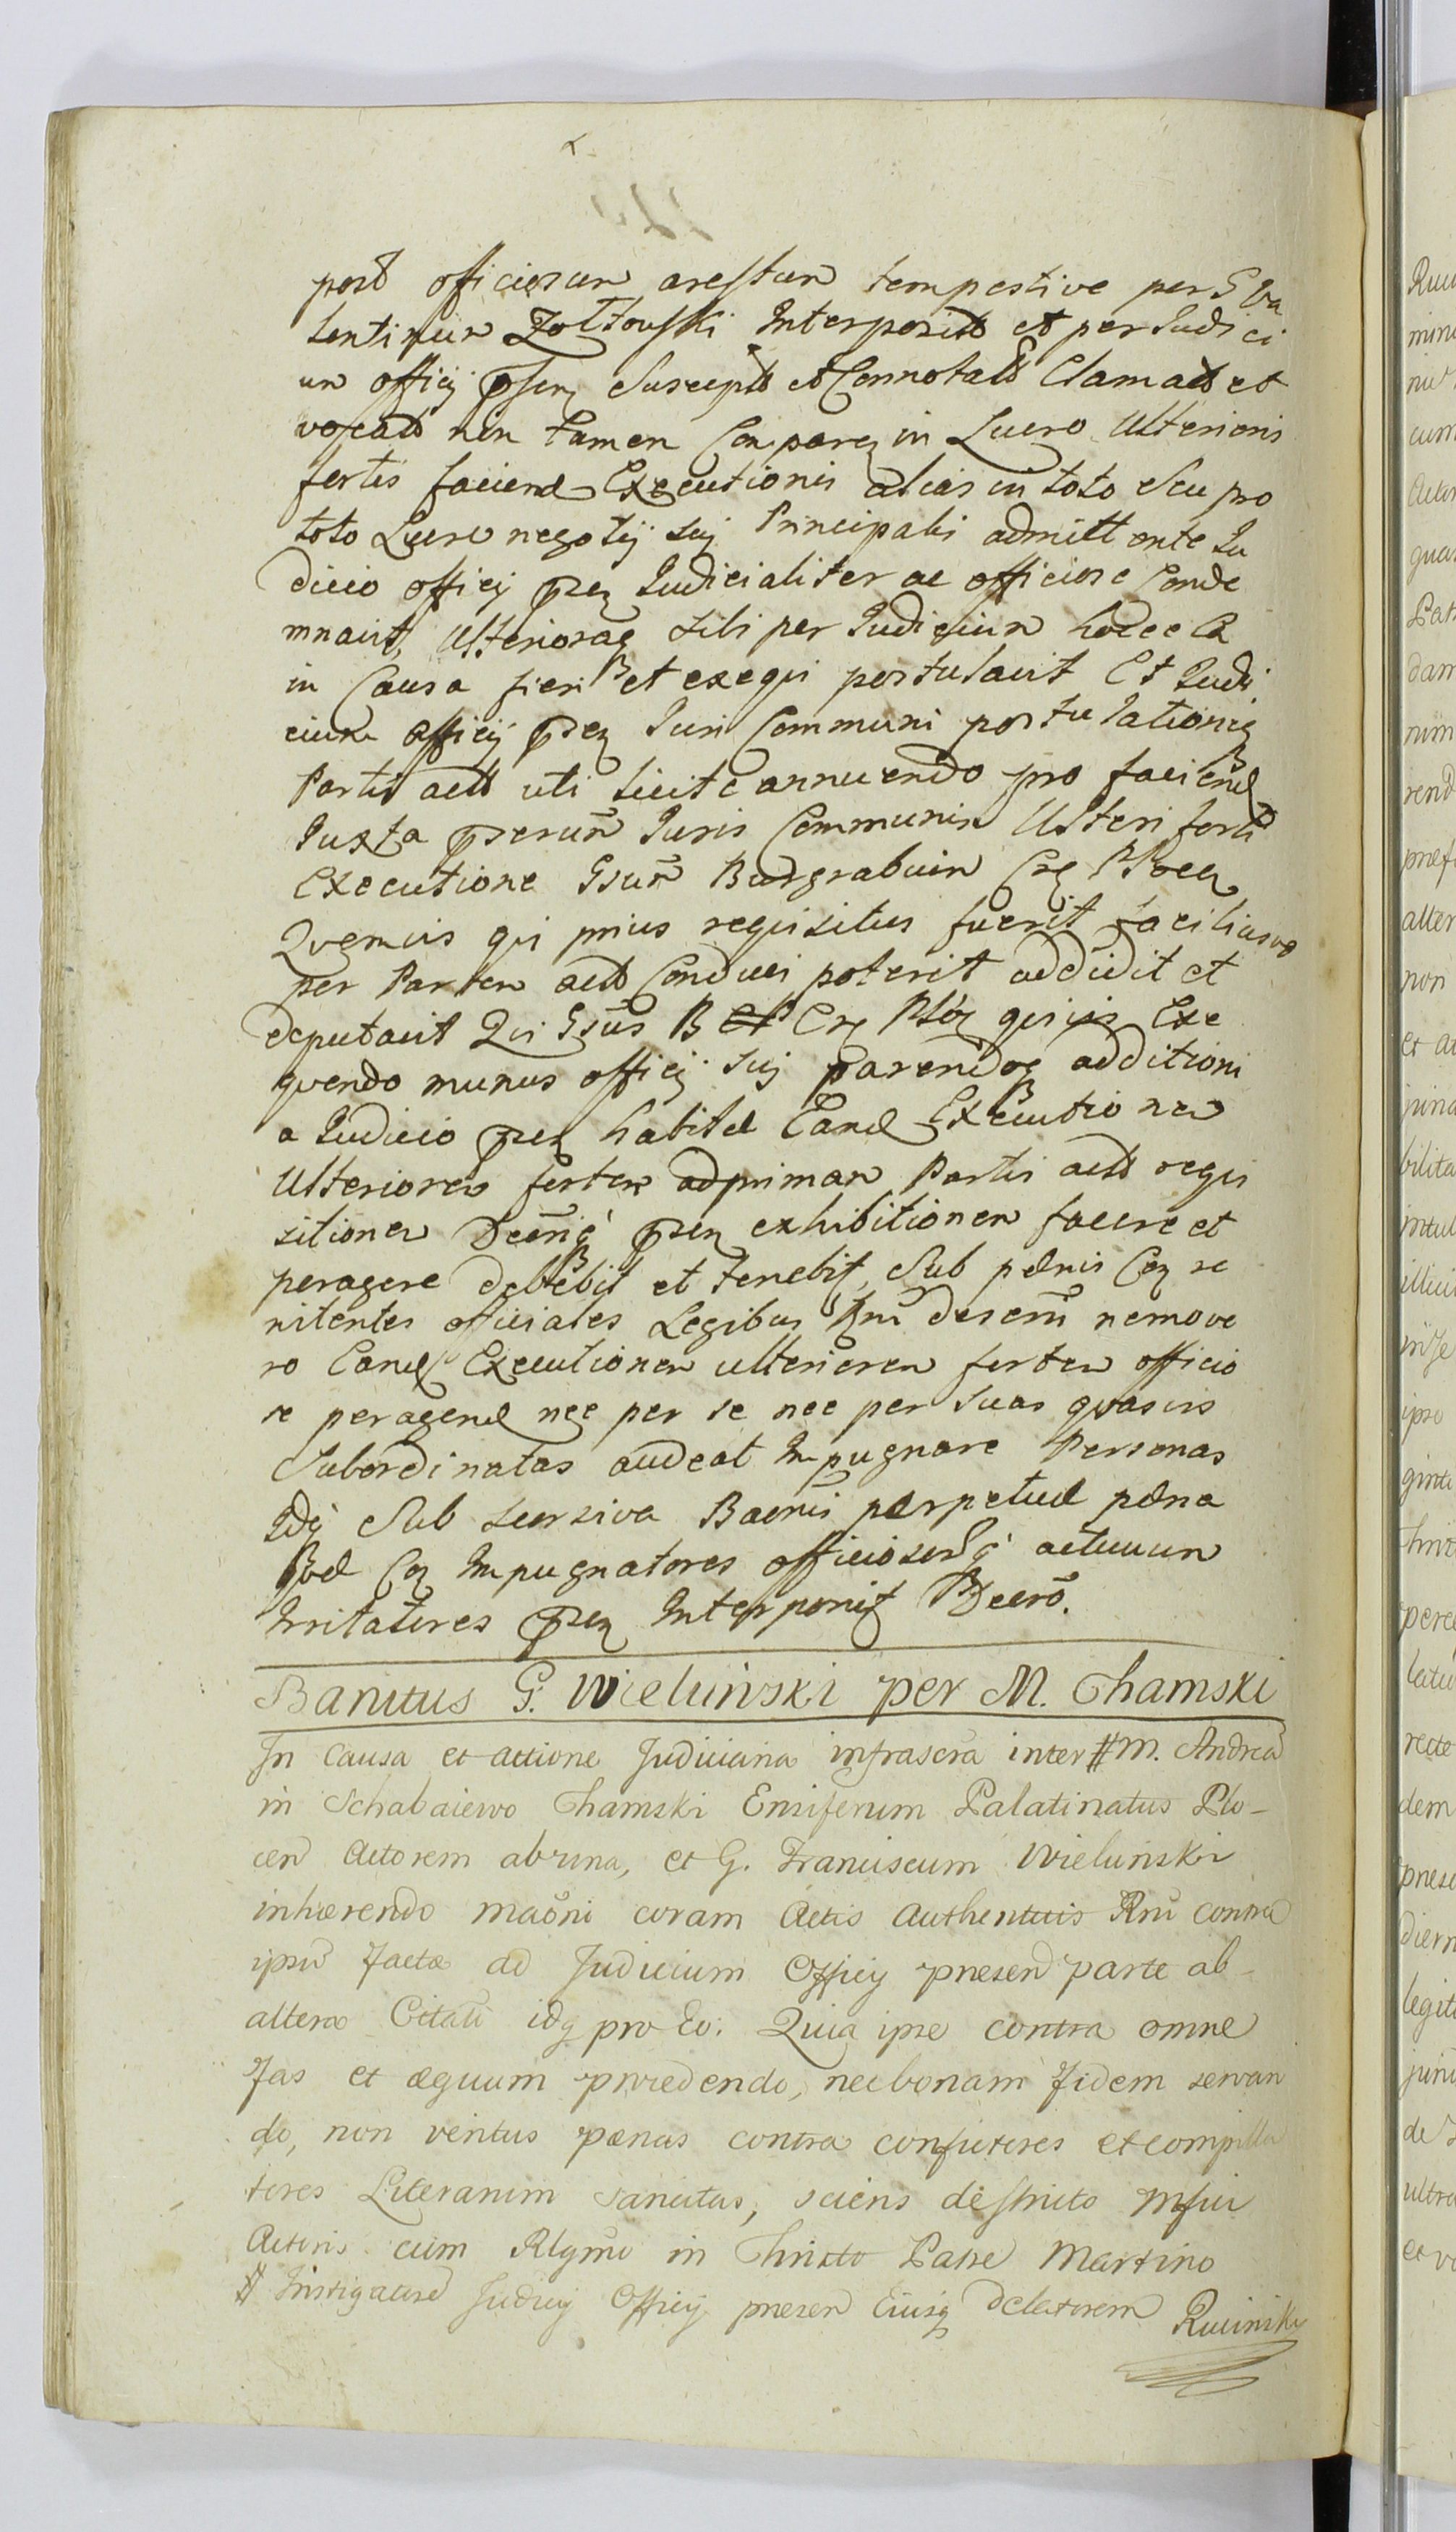 post officiosum arestum tempestive per G Va
lentinum Żołtowski Interposit et per Judici
um officij pnsen Suscept et Connotat Clamat et
vocat non tamen Comparen in Lucro Ulterioris
fortis faciend Executionis alias in toto Seu pro
toto Lucro negotij sui Principalis admittente Ju
dicio officij psen Judicialiter ac officiose Conde
mnavit, Ulterioraq sibi per Judicium hocce
in Causa fieri et exequi postulavit Et Judi
cium officij psen Juri Communi postulationiq
Partis act uti licite annuendo pro faciend
Juxta pserum Juris Communis Ulteri forti
Executione Gsum Burgrabium
Quemvis qui prius requisitus fuerit facilius ve
per Partem act Conduci poterit addidit et
deputavit Qui Gsus B quivis Exe
quendo munus officij sui parendoq additioni
a Judicio psen habitæ Eand Executionem
Ulteriorem fortem ad primam Partis act requi
sitionem psen exhibitionem facere et
peragere debebit et tenebit, Sub pænis Con re
nitentes officiales Legibus Rni descrni nemo ve
ro Eand Executionem ulteriorem fortem officio
se peragend nec per se nec per suas quasvis
Subordinatas audeat Impugnare Personas
Idq Sub successiva Baonis perpetuæ pæna
Quæ Con Impugnatores officiosorq actuum
Irritatores psen Interponit Decro.
Banitus G. Wielunski per M. Chamski
In Causa et actione Judiciaria infrascra inter # M. Andrea
in Schabaiewo Chamski Ensiferum Palatinatus Plo-
cen Actorem ab una, et G. Franciscum Wielunski
inhærendo maoni coram Actis Authenticis Rni contra
ipsu factæ ad Judicium Officij presen parte ab
altera Citatu idq pro Eo. Quia ipse contra omne
Fas et æquum procedendo, nec bonam Fidem servan
do, non veritus pænas contra confictores et compilla
tores Literarum sancitas, sciens destricto Mfici
Actoris cum Rlgmo in Christo Patre Martino
# Instigatore Judicij Officij presen Eiusq Delatorem Rucinski